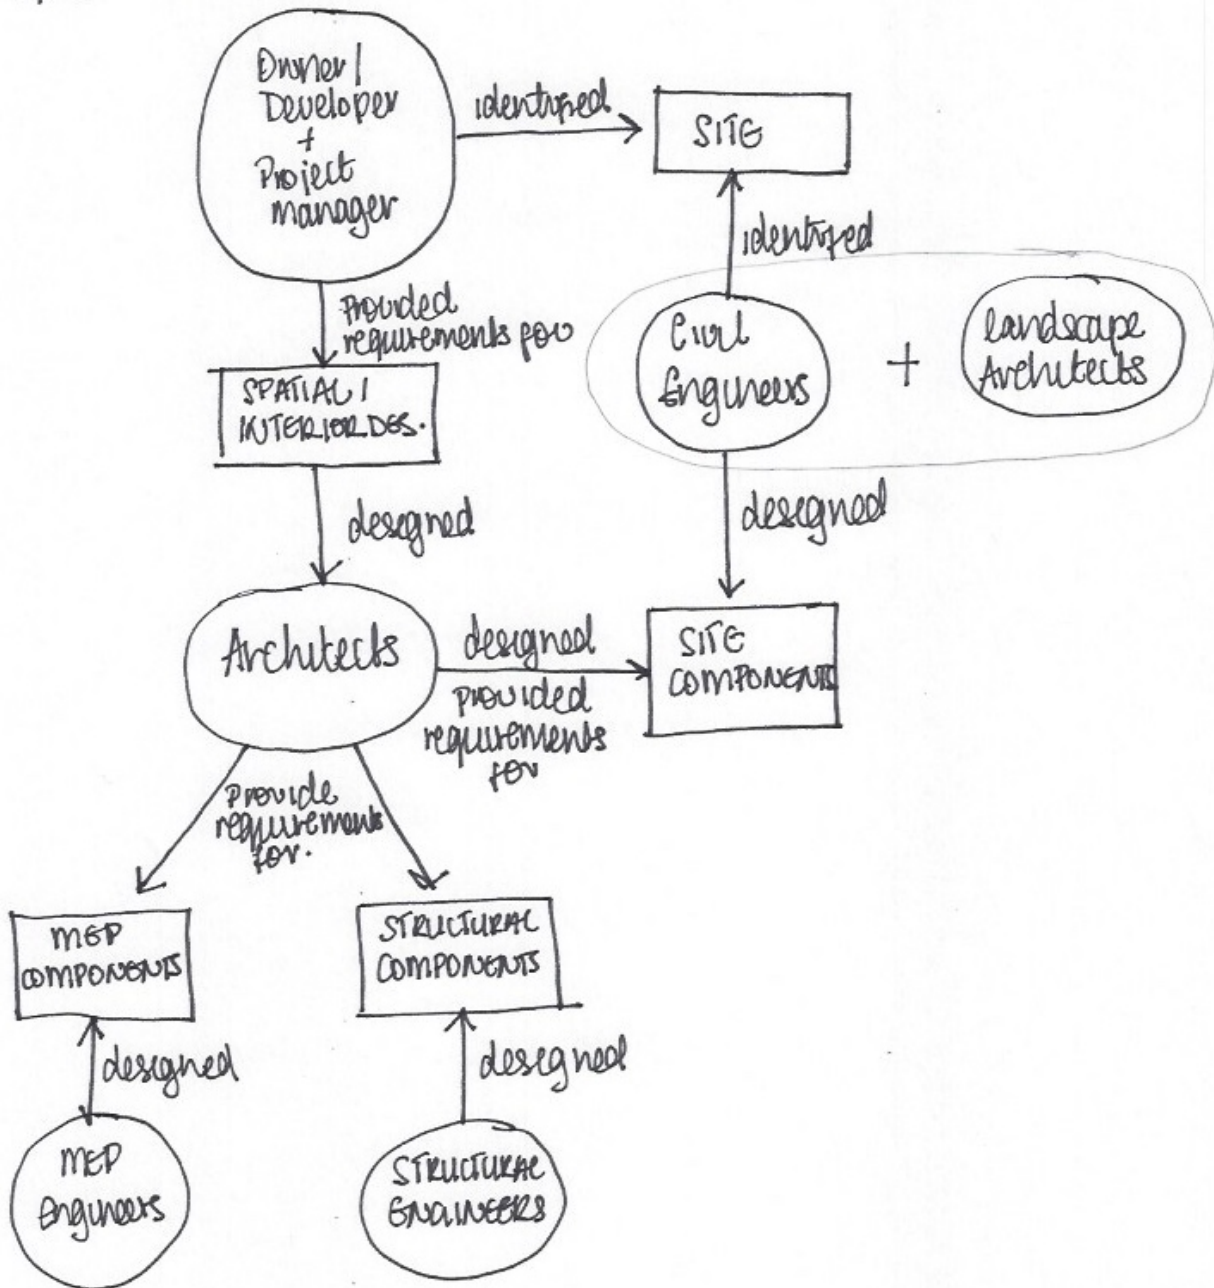 Owner/
Developer
+
Project
manager
identified
SITE
identified
Provided
requirements for
SPATIAL/
INTERIOR DES.
Civil
Engineers
+
landscape
Architects
designed
designed
Architects
designed
provided
requirements
for
SITE
COMPONENTS
Provide
requirements
for.
MEP
COMPONENTS
STRUCTURAL
COMPONENTS
designed
designed
MEP
Engineers
STRUCTURAL
ENGINEERS